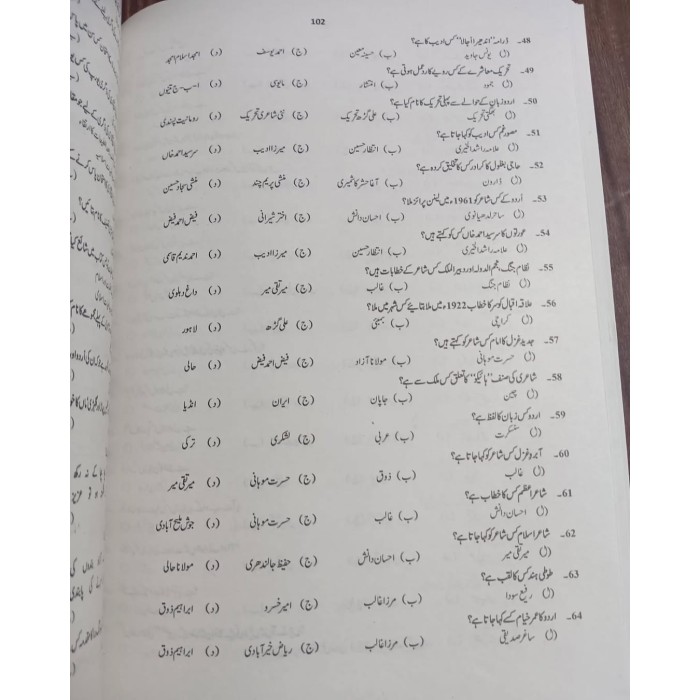 102
48۔ ڈرامہ "اندھیرا اجالا" کس ادیب کا ہے؟
(ا) یونس جاوید (ب) حسینہ معین (ج) احمد یوسف (د) امجد اسلام امجد
49۔ تحریک معاشرے کے کس رویے کا ردعمل ہوتی ہے؟
(ا) جمود (ب) انتشار (ج) مایوسی (د) ا۔ب۔ج تینوں
50۔ اردو زبان کے حوالے سے پہلی تحریک کا نام کیا ہے؟
(ا) بھگتی تحریک (ب) علی گڑھ تحریک (ج) نئی شاعری تحریک (د) رومانیت پسندی
51۔ مصور غم کس ادیب کو کہا جاتا ہے؟
(ا) علامہ راشد الخیری (ب) انتظار حسین (ج) میرزا ادیب (د) سرسید احمد خاں
52۔ حاجی بغلول کا کردار کس کا تخلیق کردہ ہے؟
(ا) ڈارون (ب) آغا حشر کاشمیری (ج) منشی پریم چند (د) منشی سجاد حسین
53۔ اُردو کے کس شاعر کو 1961ء میں لینن پرائز ملا؟
(ا) ساحر لدھیانوی (ب) احسان دانش (ج) اختر شیرانی (د) فیض احمد فیض
54۔ عورتوں کا سرسید احمد خاں کس کو کہتے ہیں؟
(ا) علامہ راشد الخیری (ب) انتظار حسین (ج) میرزا ادیب (د) احمد ندیم قاسمی
55۔ نظام جنگ، نجم الدولہ اور دبیر الملک کس شاعر کے خطابات ہیں؟
(ا) نظام جنگ (ب) غالب (ج) میر تقی میر (د) داغ دہلوی
56۔ علامہ اقبال کو سر کا خطاب 1922ء میں ملا بتائیے کس شہر میں ملا؟
(ا) کراچی (ب) بمبئی (ج) علی گڑھ (د) لاہور
57۔ جدید غزل کا امام کس شاعر کو کہتے ہیں؟
(ا) حسرت موہانی (ب) مولانا آزاد (ج) فیض احمد فیض (د) حالی
58۔ شاعری کی صنف "ہائیکو" کا تعلق کس ملک سے ہے؟
(ا) چین (ب) جاپان (ج) ایران (د) انڈیا
59۔ اردو کس زبان کا لفظ ہے؟
(ا) سنسکرت (ب) عربی (ج) لشکری (د) ترکی
60۔ آبروِ غزل کس شاعر کو کہا جاتا ہے؟
(ا) غالب (ب) ذوق (ج) حسرت موہانی (د) میر تقی میر
61۔ شاعر اعظم کس کا خطاب ہے؟
(ا) احسان دانش (ب) غالب (ج) حسرت موہانی (د) جوش ملیح آبادی
62۔ شاعر اسلام کس شاعر کو کہا جاتا ہے؟
(ا) میر تقی میر (ب) احسان دانش (ج) حفیظ جالندھری (د) مولانا حالی
63۔ طوطی ہند کس کا لقب ہے؟
(ا) رفیع سودا (ب) مرزا غالب (ج) امیر خسرو (د) ابراہیم ذوق
64۔ اردو کا عمر خیام کسے کہا جاتا ہے؟
(ا) ساغر صدیقی (ب) مرزا غالب (ج) ریاض خیر آبادی (د) ابراہیم ذوق